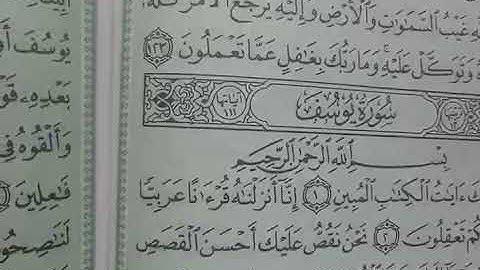 غَيْبُ ٱلسَّمَٰوَٰتِ وَٱلْأَرْضِ وَإِلَيْهِ يُرْجَعُ ٱلْأَمْرُ كُلُّهُ
وَتَوَكَّلْ عَلَيْهِ ۚ وَمَا رَبُّكَ بِغَٰفِلٍ عَمَّا تَعْمَلُونَ ١٢٣
سُورَةُ يُوسُفَ آياتها ١١١
بِسْمِ ٱللَّهِ ٱلرَّحْمَٰنِ ٱلرَّحِيمِ
ءَايَٰتُ ٱلْكِتَٰبِ ٱلْمُبِينِ ١ إِنَّآ أَنزَلْنَٰهُ قُرْءَٰنًا عَرَبِيًّا
تَعْقِلُونَ ٢ نَحْنُ نَقُصُّ عَلَيْكَ أَحْسَنَ ٱلْقَصَصِ
يُوسُفَ
بَعْدِهِۦ
وَأَلْقُوهُ فِي
فَٰعِلِينَ